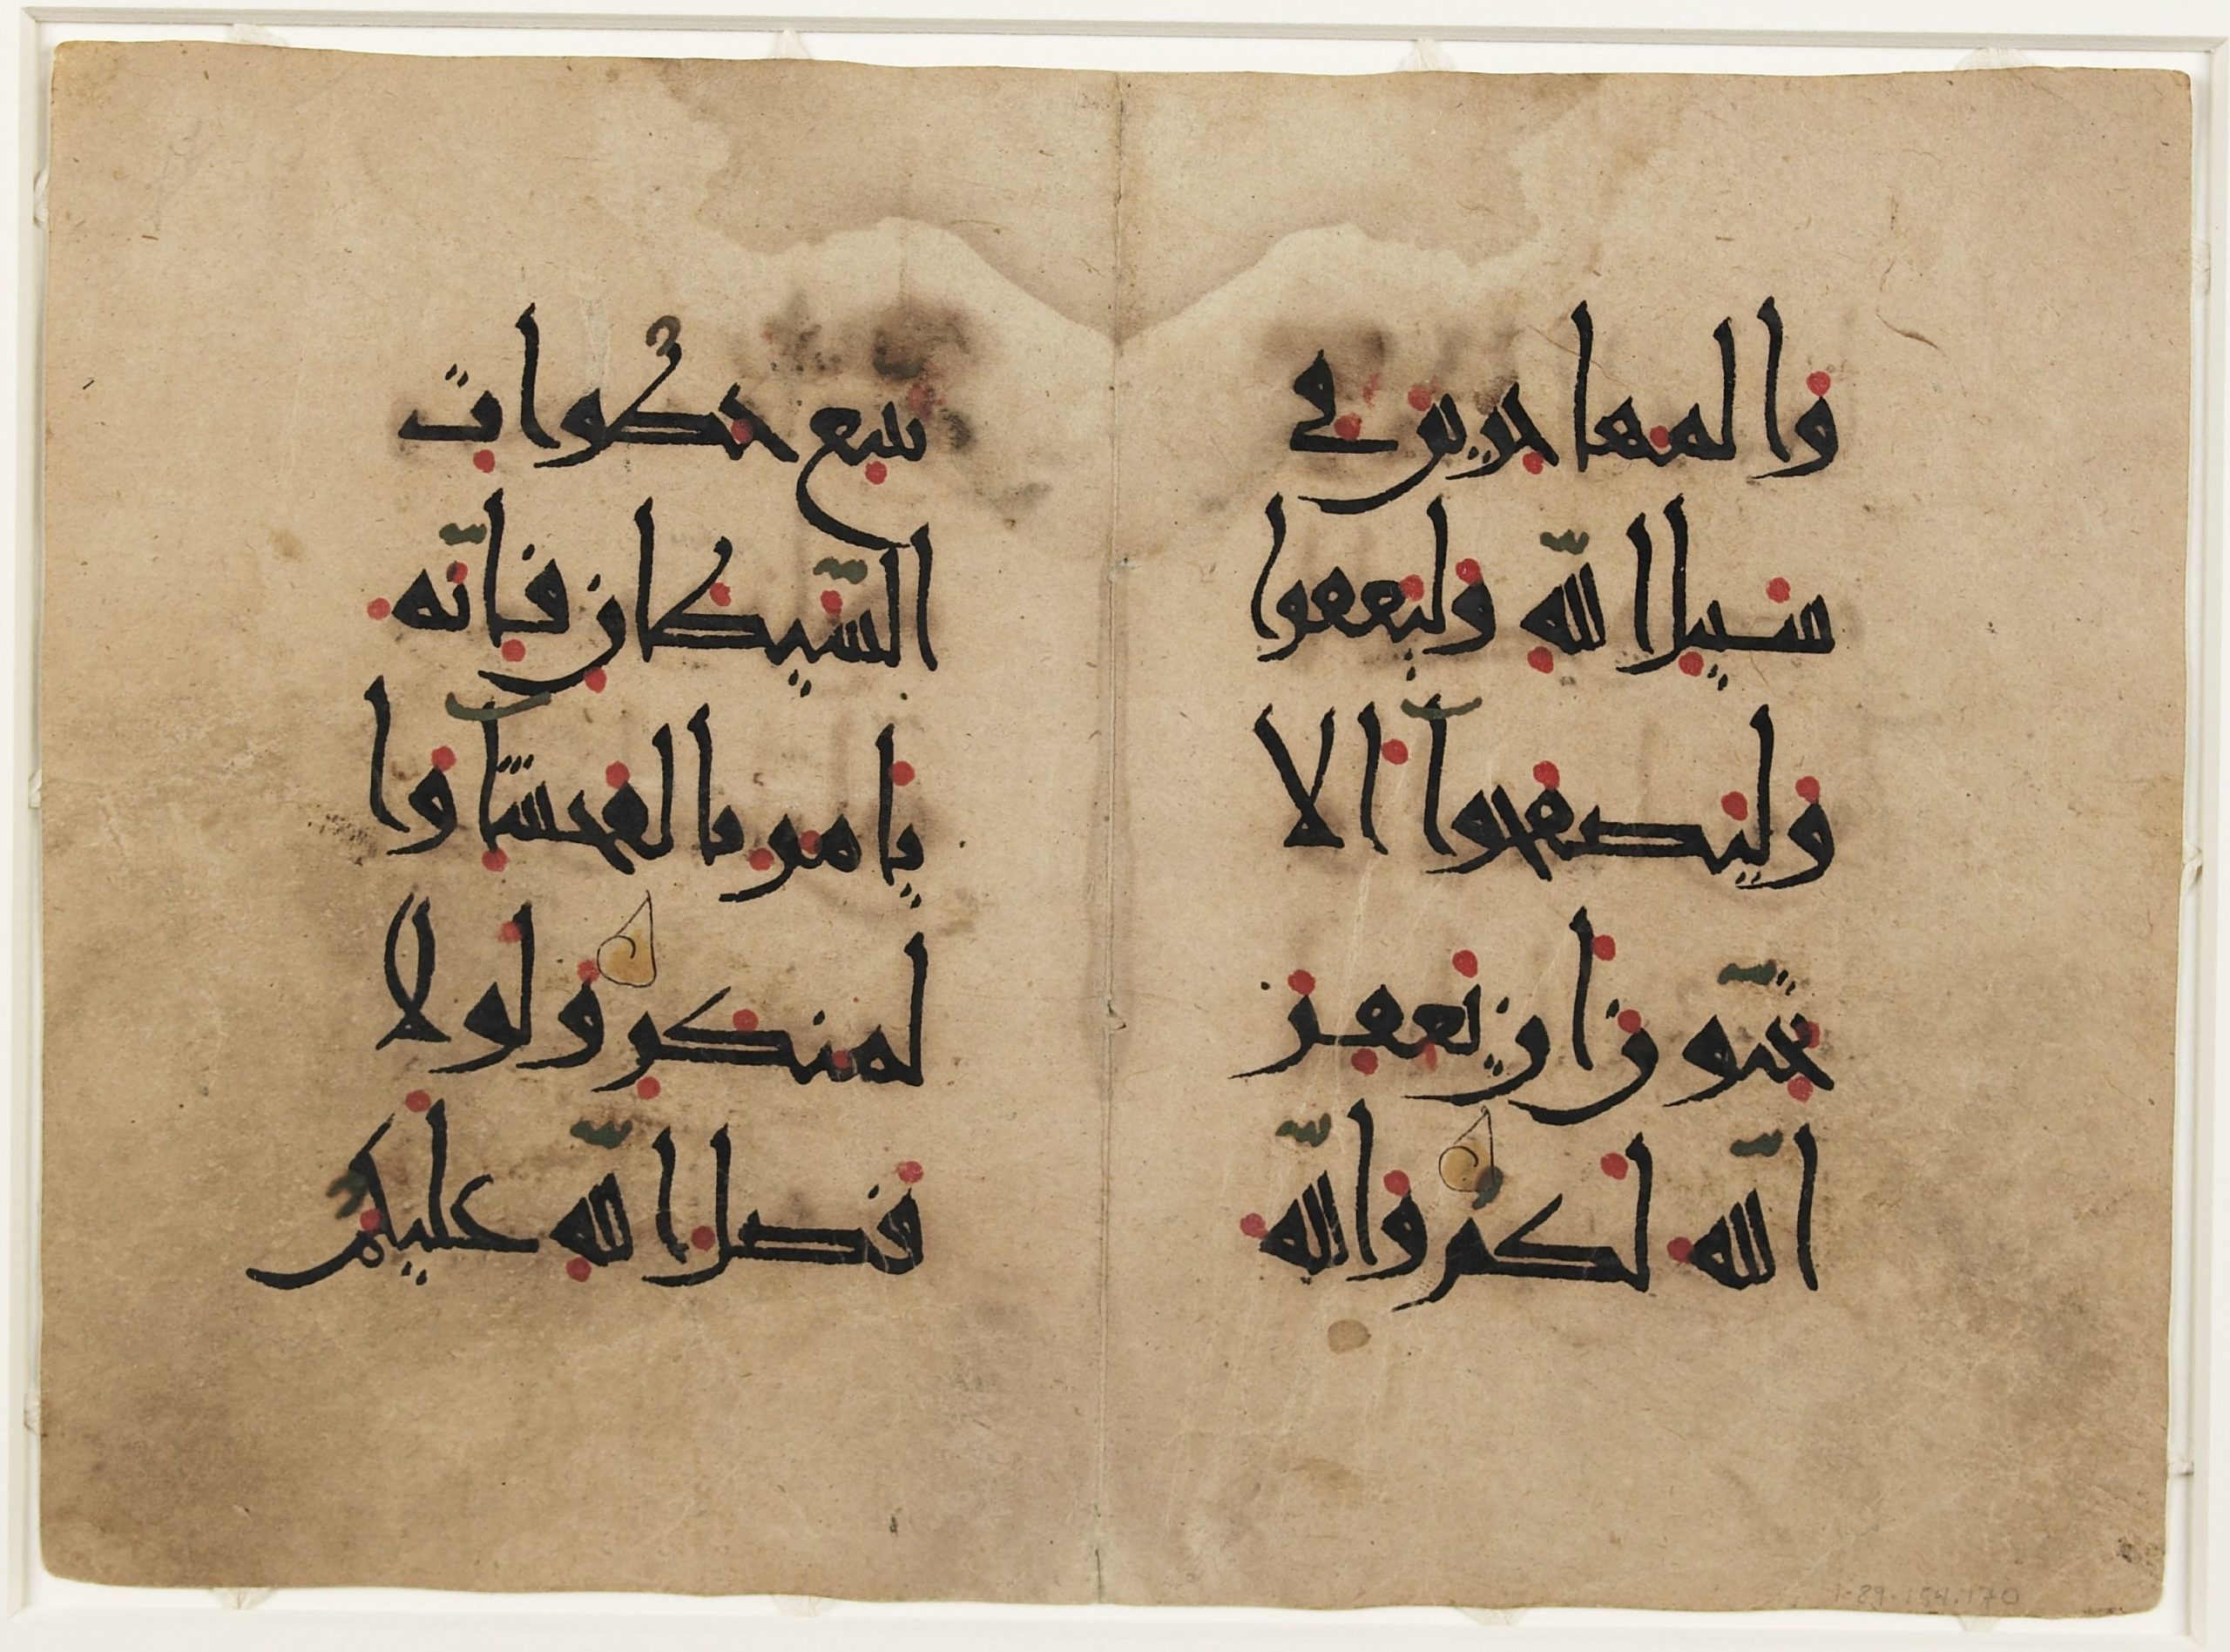 والمهاجرين في
سبيل الله وليعفوا
وليصفحوا الا
تحبون ان يغفر
الله لكم والله
يتبع خطوات
الشيطان فانه
يامر بالفحشا وا
لمنكر ولولا
فضل الله عليكم
1-89.154.170